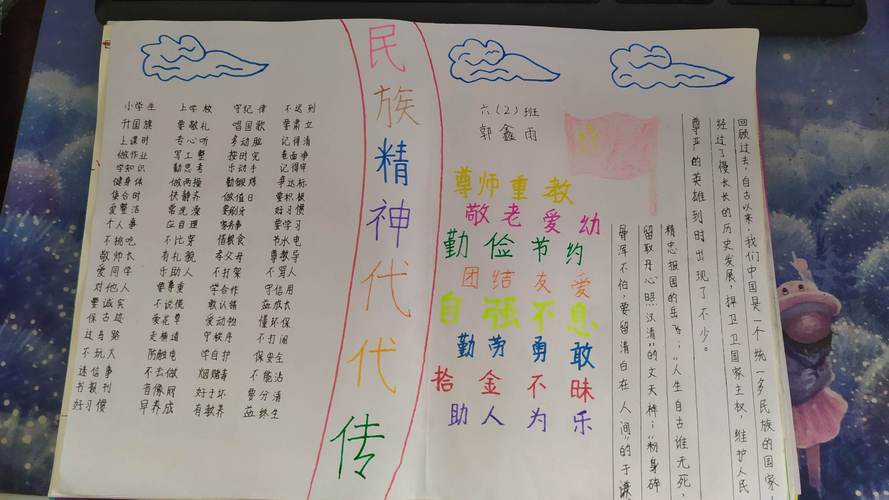 民族精神代代传
小学生 上学校 守纪律 不迟到
升国旗 要敬礼 唱国歌 要肃立
上课时 专心听 多动脑 记得清
做作业 写工整 按时完 卷面净
学知识 勤思考 乐动手 记得牢
健身体 做两操 勤锻炼 争达标
集合时 快静齐 做值日 要积极
爱整洁 常洗澡 要刷牙 好习惯
个人事 应自理 家务事 要学习
不挑吃 不比穿 惜粮食 节水电
敬师长 有礼貌 孝父母 尊教导
爱同学 乐助人 不打架 不骂人
对他人 要尊重 学合作 守信用
要诚实 不说慌 敢认错 益成长
保古迹 爱花草 爱动物 懂环保
过马路 走横道 守秩序 不打闹
不玩火 防触电 学自护 保安全
迷信事 不去做 烟赌毒 不能沾
书报刊 音像厨 好于坏 要分清
好习惯 早养成 有教养 益终生
六(2)班
郭鑫雨
尊师重教
敬老爱幼
勤俭节约
团结友爱
自强不息
勤劳勇敢
拾金不昧
助人为乐
回顾过去,自古以来,我们中国是一个统一多民族的国家
经过了慢长长的历史发展,捍卫卫国家主权,维护人民
尊严的英雄到时出现了不少。
精忠报国的岳飞;"人生自古谁无死,
留取丹心照汉清"的文天祥;"粉身碎
骨浑不怕,要留清白在人间"的于谦